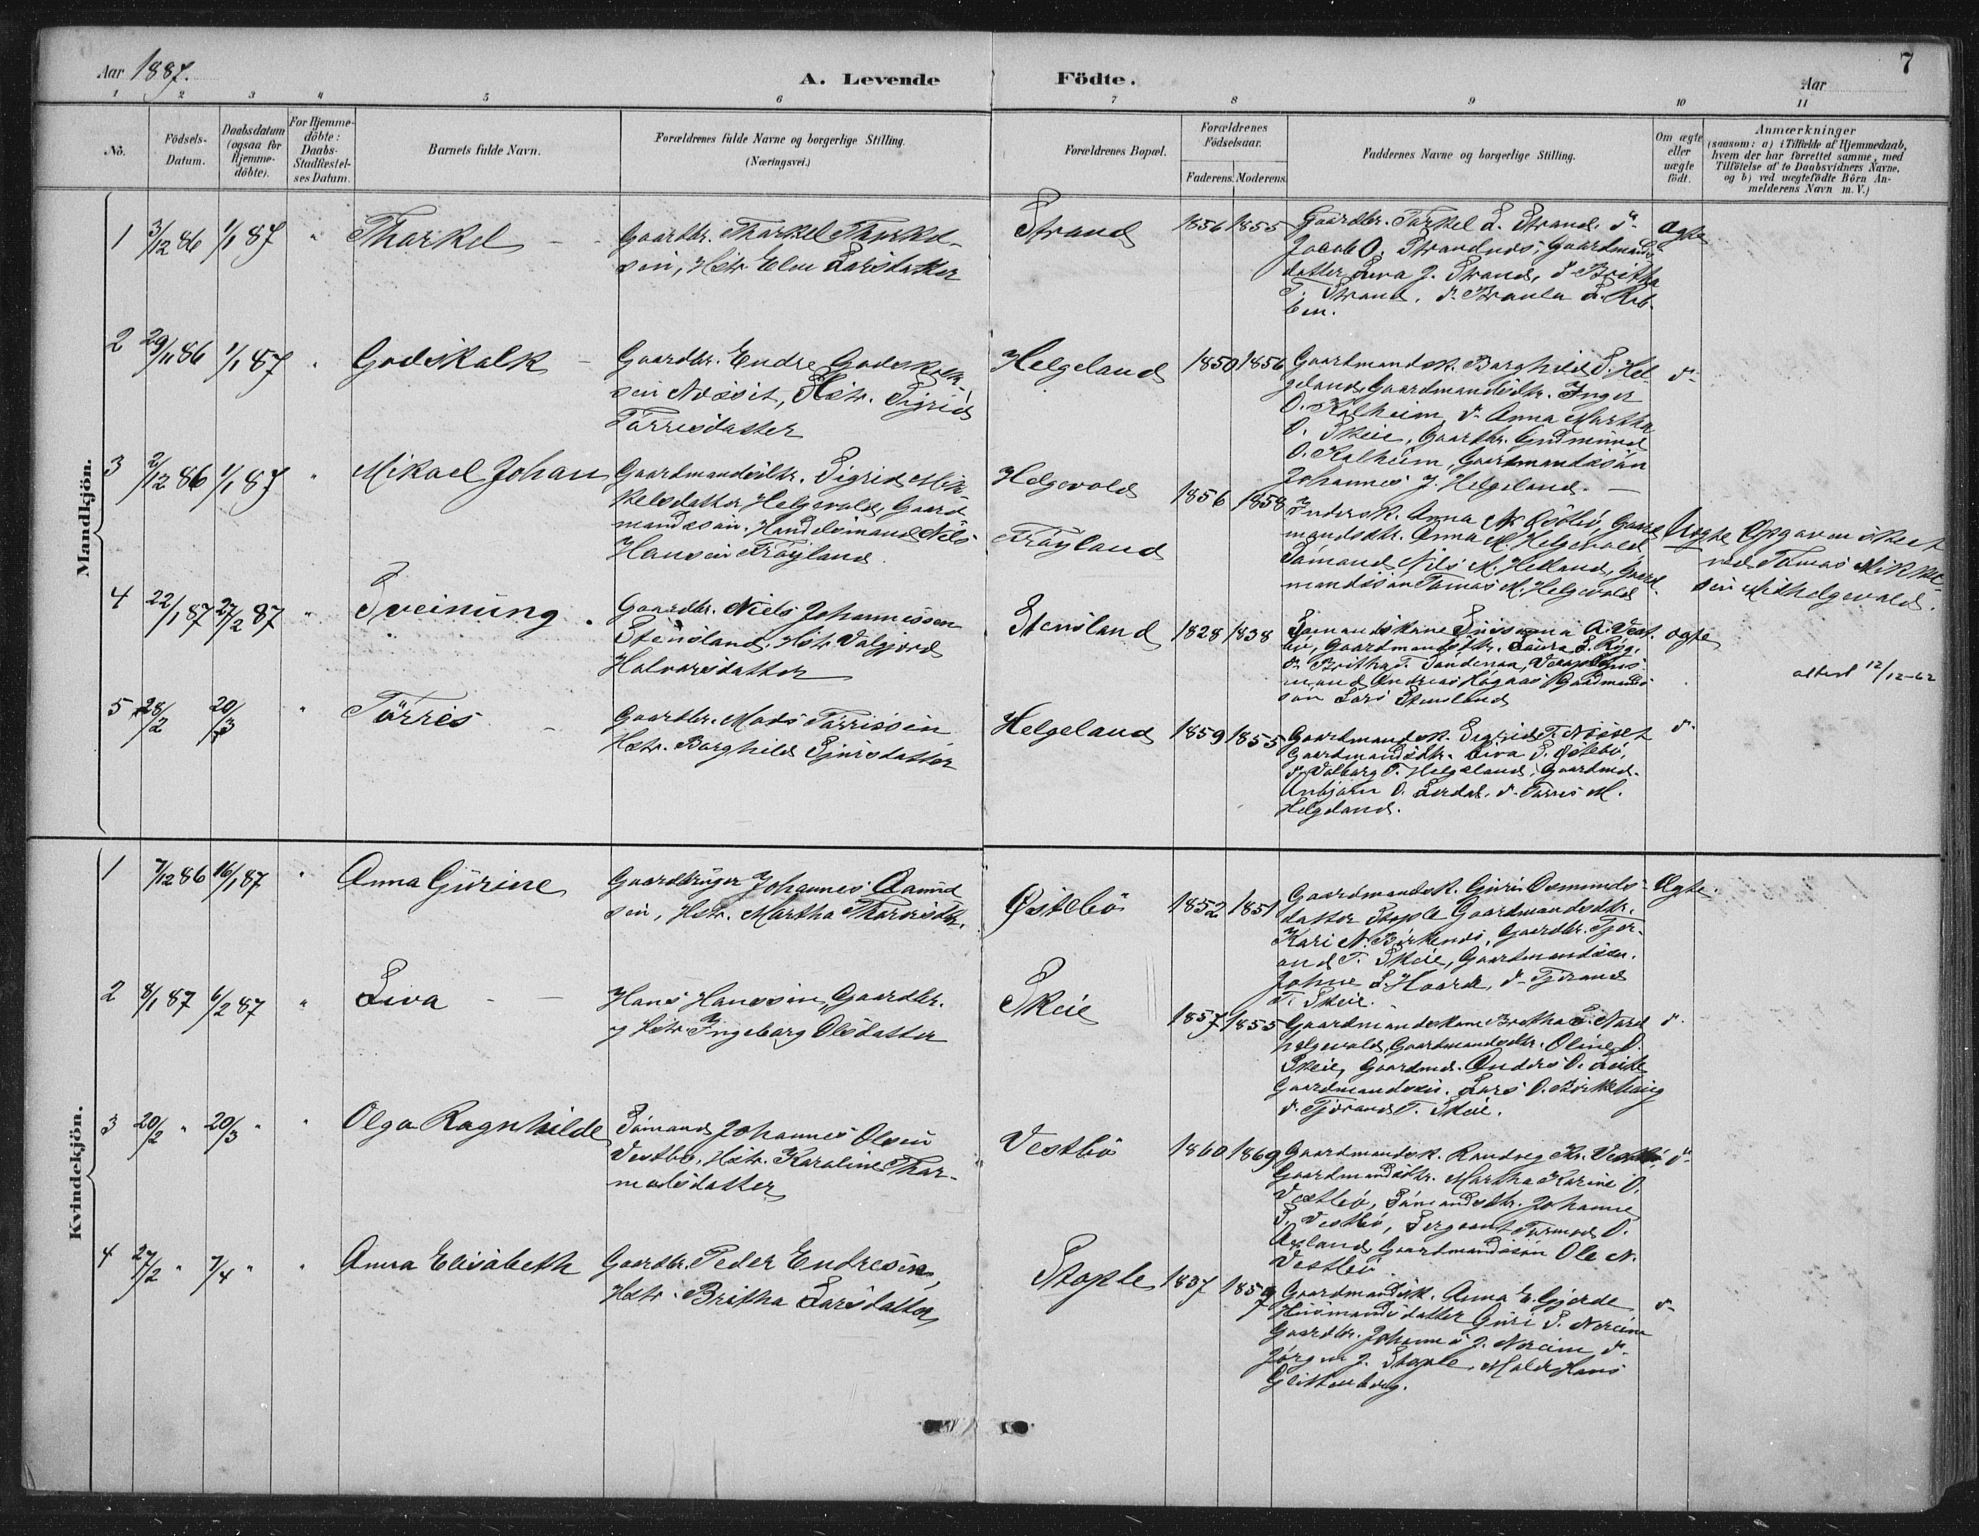 7
Aar 1887.
A. Levende Födte.
Aar
1 2 3 4 5 6 7 8 9 10 11
No.
Födsels-Datum.
Daabsdatum (ogsaa for Hjemme-döbte).
For Hjemme-döbte: Daabs-Stadfæstel-ses Datum.
Barnets fulde Navn.
Forældrenes fulde Navne og borgerlige Stilling.
(Næringsvei.)
Forældrenes Bopæl.
Forældrenes Födselsaar.
Faderens. Moderens.
Faddernes Navne og borgerlige Stilling.
Om ægte eller uægte födt.
Anmærkninger
(saasom: a) i Tilfælde af Hjemmedaab,
hvem der har forrettet samme, med
Tilföielse af to Daabsvidners Navne,
og b) ved uægtefödte Börn An-
melderens Navn m. V.)
Mandkjön.
1 3/12 86 1/1 87 " Thorkel
Gaardbr. Thorkel Thorkel-
sen, Hstr. Elen Larsdatter
Strand 1856 1855
Gaardbr. Torkel L. Strand, do
Jacob O. Strandnes, Gaardmands-
datter Siva J. Strand, do Britha
T. Strand, do
ægte
2 29/11 86 1/1 87 " Godskalk
Gaardbr. Endre Godskalk-
sen Nösset, Hstr. Sigrid
Törresdatter
Helgeland 1850 1856
Gaardmandsk. Borghild S. Hel-
geland, Gaardmandsdtr. Inger
O. Kalheim, do Anna Martha
O. Skeie, Gaardbr. Gudmund
O. Kalheim, Gaardmandssön
Johannes J. Helgeland.
do
3 2/12 86 1/1 87 " Mikael Johan
Gaardmandsdtr. Sigrid Mik-
kelsdatter Helgevold, Gaard-
mandssön, Handelsmand Nils
Hansen Fröyland
Helgevold
Fröyland
1856 1858
Anna M. Östbö, Gaard-
mandsdtr. Anna M. Helgevold
Sömand Nils M. Helland, Gaard-
mandssön Tomas M. Helgevold
Uægte
Opgaven sikret
ved Tomas Mikkel-
sen Mithelgevold.
4 22/1 87 27/2 87 " Sveinung
Gaardbr. Niels Johannessen
Stensland, Hstr. Valgjerd
Halvorsdatter
Stensland 1828 1838
Sömandskone Susanna A. Vest-
bö, Gaardmandsdtr. Laura S. Ryg,
do Britha T. Sandenaa,
mand Andreas Högaas, Gaardmands-
sön Lars Stensland
ægte
attest 12/12-62
5 28/2 20/3 " Törres
Gaardbr. Mads Törrissen
Hstr. Borghild Sjursdatter
Helgeland 1859 1855
Gaardmandsk. Sigrid T. Nösset
Gaardmandsdtr. Siva S. Östebö,
do Valborg T. Helgeland, Gaardmd.
Anbjörn O. Lerdal, do Törres M.
Helgeland.
do
Kvindekjön.
1 7/12 86 16/1 87 " Anna Gurine
Gaardbruger Johannes Aamund-
sen, Hstr. Martha Thoresdtr.
Östebö 1852 1851
Gaardmandsk. Guri Osmunds-
datter Stople, Gaardmandsdtr.
Kari N. Birkenes, Gaardbr. Tjer-
and T. Skeie, Gaardmandssön
Johne S. Hoarde, do Tjerand
T. Skeie.
Ægte.
2 8/1 87 6/2 87 " Siva
Hans Hanssen, Gaardbr.
og Hstr. Ingeborg Olsdatter
Skeie 1857 1855
Gaardmandskone Britha S. Nord-
helgevold, Gaardmandsdtr. Oline O.
Skeie, Gaardmd. Anders O. Leite
Gaardmandssön. Lars O. Birkehaug
do Tjerand T. Skeie.
do
3 20/2 " 20/3 " " Olga Ragnhilde
Sömand Johannes Olsen
Vestbö, Hstr. Karoline Thor-
modsdatter
Vestbö 1860 1869
Gaardmandsk. Randveg Kr. Vestbö,
Gaardmandsdtr. Martha Karine O.
Vestbö, Sömandsdtr. Johanne
S. Vestbö, Sergeant Tormod O.
Gaardmandssön Ole N.
Vestbö
do
4 27/2 " 7/4 " " Anna Elisabeth
Gaardbr. Peder Endresen,
Hstr. Britha Larsdatter
Stople 1857 1859
Gaardmandsk. Anna E. Gjerde
Husmandsdatter Guri S. Nereim
Gaardbr. Johannes J. Nereim do
Jörgen J. Stople, Maler Hans
Glittenberg.
do